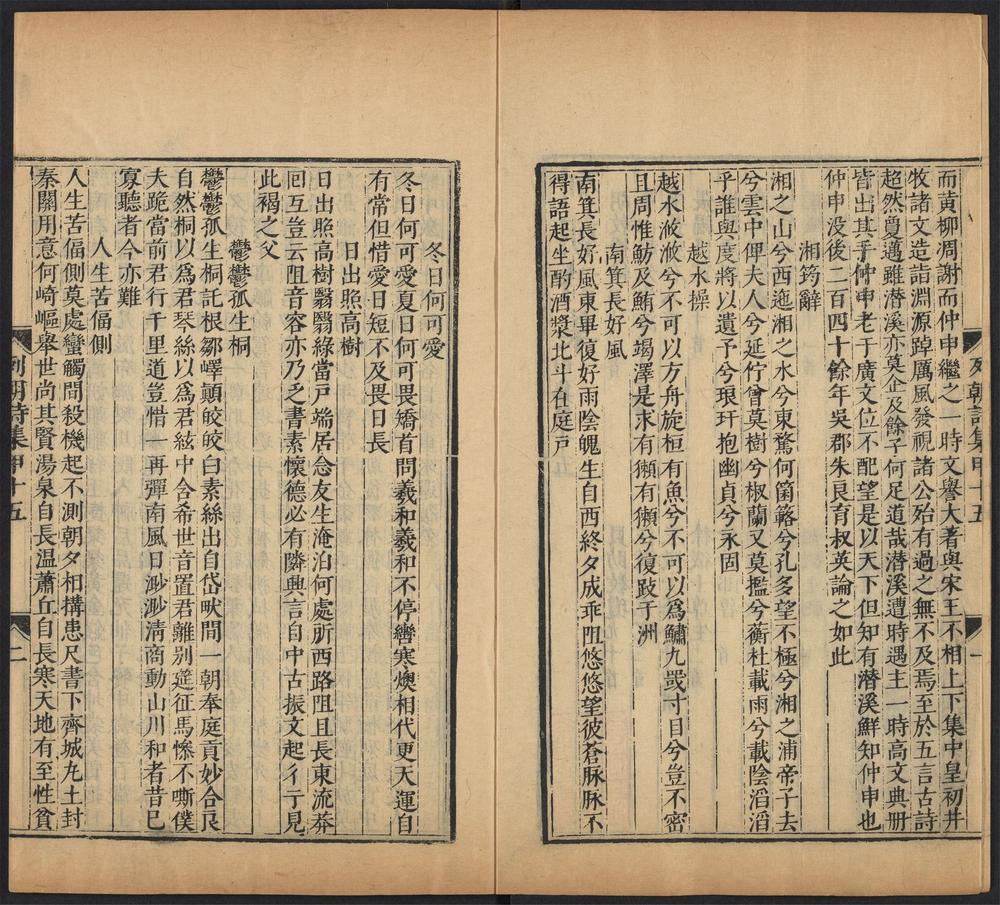 而黃柳凋謝而仲申繼之一時文譽大著與宋王不相上下集中皇初井
牧諸文造詣淵源踔厲風發視諸公殆有過之無不及焉至於五言古詩
超然敻邁雖潛溪亦莫企及餘子何足道哉潛溪遭時遇主一時高文典冊
皆出其手仲申老于廣文位不配望是以天下但知有潛溪鮮知仲申也
仲申没後二百四十餘年吳郡朱良育叔英論之如此
湘筠辭
湘之山兮西迤湘之水兮東騖何箘簵兮孔多望不極兮湘之浦帝子去
兮雲中俾夫人兮延佇曾莫樹兮椒蘭又莫㩜兮蘅杜載雨兮載陰滔滔
乎誰與度將以遺予兮琅玕抱幽貞兮永固
越水操
越水㳛㳛兮不可以方舟旋桓有魚兮不可以爲鱐九罭寸目兮豈不密
且周惟魴及鮪兮竭澤是求有獺有獺兮復跂于洲
南箕長好風
南箕長好風東畢復好雨陰魄生自西終夕成乖阻悠悠望彼蒼脉脉不
得語起坐酌酒漿北斗在庭戸
列朝詩集甲十五
一
冬日何可愛
冬日何可愛夏日何可畏矯首問羲和羲和不停轡寒燠相代更天運自
有常但惜愛日短不及畏日長
日出照高樹
日出照高樹翳翳綠當戸端居念友生淹泊何處所西路阻且長東流莽
回互豈云阻音容亦乃乏書素懷德必有隣興言自中古振文起彳亍見
此褐之父
鬱鬱孤生桐
鬱鬱孤生桐託根鄒嶧顛皎皎白素絲出自岱畎間一朝奉庭貢妙合良
自然桐以爲君琴絲以爲君絃中含希世音置君離别筵征馬慘不嘶僕
夫跪當前君行千里道豈惜一再彈南風日渺渺淸商動山川和者昔已
寡聽者今亦難
人生苦偪側
人生苦偪側莫處蠻觸間殺機起不測朝夕相搆患尺書下齊城九土封
秦關用意何崎嶇舉世尚其賢湯泉自長温蕭丘自長寒天地有至性貧
列朝詩集甲十五
二